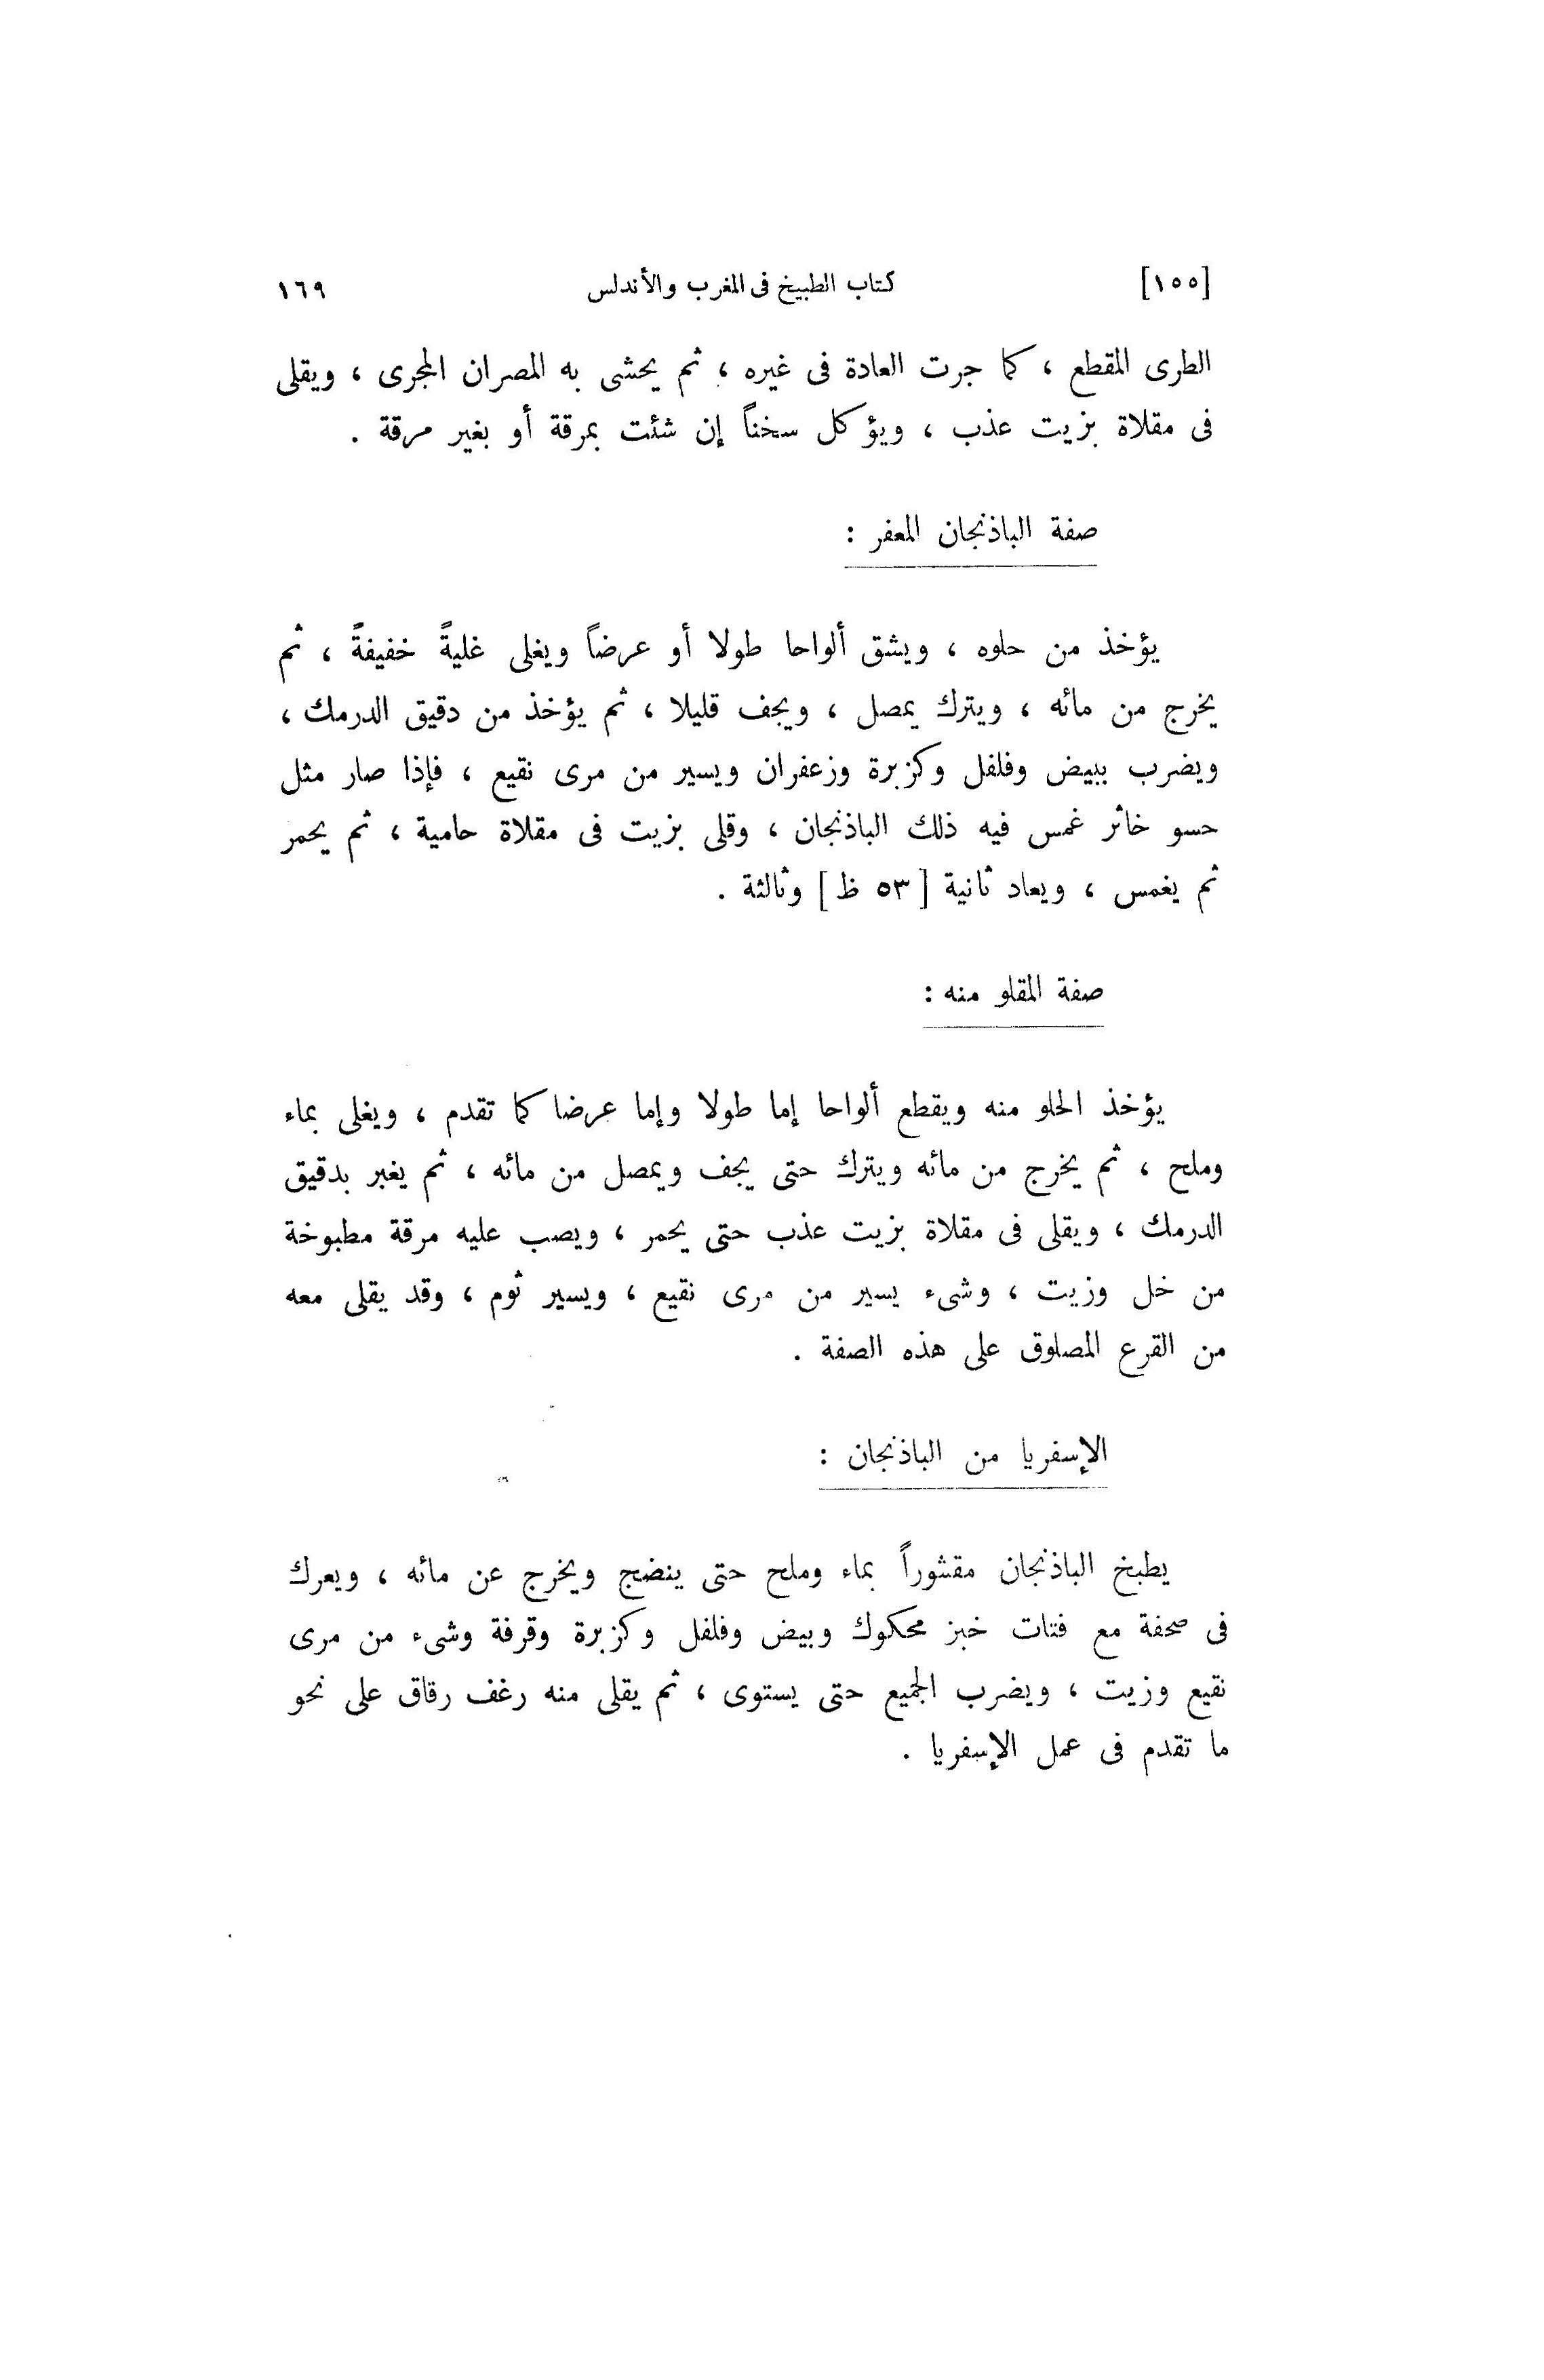 [١٥٥] كتاب الطبيخ فى المغرب والأندلس ١٦٩
الطرى المقطع ، كما جرت العادة فى غيره ، ثم يحشى به المصران المجرى ، ويقلى
فى مقلاة بزيت عذب ، ويؤكل سخناً إن شئت بمرقة أو بغير مرقة .
صفة الباذنجان المعفر :
يؤخذ من حلوه ، ويشق ألواحا طولا أو عرضاً ويغلى غليةً خفيفةً ، ثم
يخرج من مائه ، ويترك يمصل ، ويجف قليلا ، ثم يؤخذ من دقيق الدرمك ،
ويضرب ببيض وفلفل وكزبرة وزعفران ويسير من مرى نقيع ، فإذا صار مثل
حسو خاثر غمس فيه ذلك الباذنجان ، وقلى بزيت فى مقلاة حامية ، ثم يحمر
ثم يغمس ، ويعاد ثانية [ ٥٣ ظ ] وثالثة .
صفة المقلو منه :
يؤخذ الحلو منه ويقطع ألواحا إما طولا وإما عرضا كما تقدم ، ويغلى بماء
وملح ، ثم يخرج من مائه ويترك حتى يجف ويمصل من مائه ، ثم يغبر بدقيق
الدرمك ، ويقلى فى مقلاة بزيت عذب حتى يحمر ، ويصب عليه مرقة مطبوخة
من خل وزيت ، وشىء يسير من مرى نقيع ، ويسير ثوم ، وقد يقلى معه
من القرع المصلوق على هذه الصفة .
الإسفريا من الباذنجان :
يطبخ الباذنجان مقشوراً بماء وملح حتى ينضج ويخرج عن مائه ، ويعرك
فى صحفة مع فتات خبز محكوك وبيض وفلفل وكزبرة وقرفة وشىء من مرى
نقيع وزيت ، ويضرب الجميع حتى يستوى ، ثم يقلى منه رغف رقاق على نحو
ما تقدم فى عمل الإسفريا .